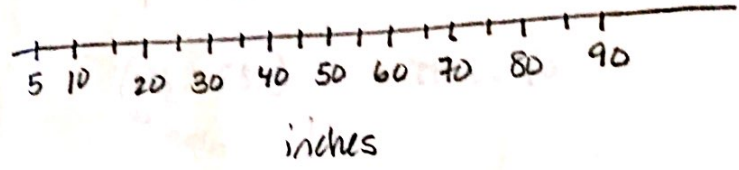 5 10 20 30 40 50 60 70 80 90
inches